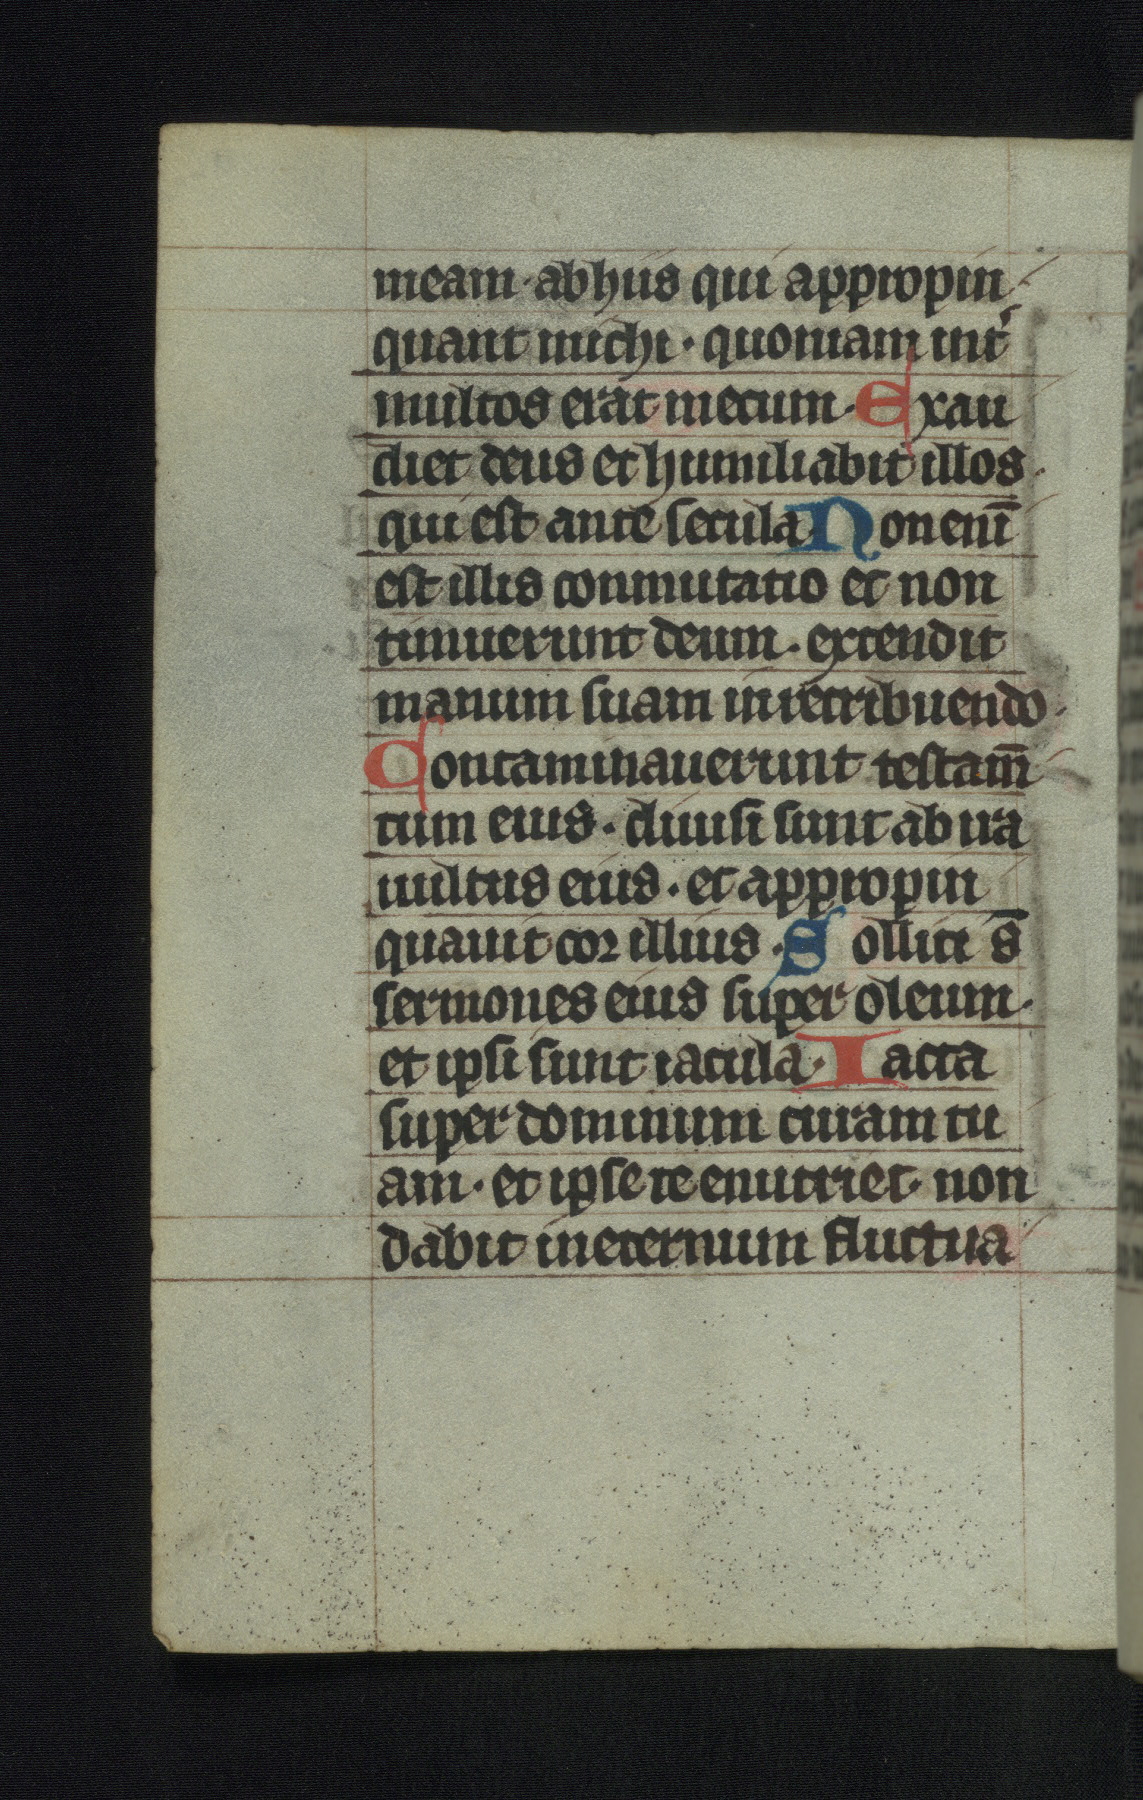 meam · ab hiis qui appropin
quant michi · quoniam int̾
multos erat mecum · Exau
diet deus et humiliabit illos ·
qui est ante secula · Non eni̅
est illis conmutatio et non
timuerunt deum · extendit
manum suam in retribuendo ·
Contaminauerunt testam̅
tum eius · diuisi sunt ab ira
uultus eius · et appropin
quauit cor illius · Molliti s̅
sermones eius super oleum ·
et ipsi sunt iacula · Iacta
super dominum curam tu
am · et ipse te enutriet · non
dabit in eternum fluctua